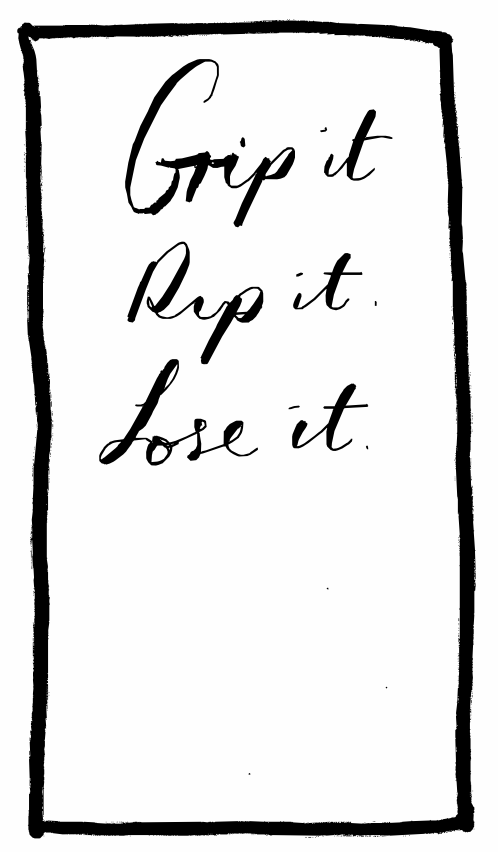 Grip it
Rip it.
Lose it.